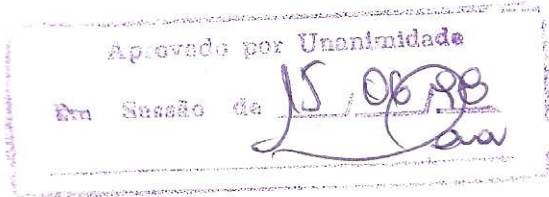 Aprovado por Unanimidade
Em Sessão de 15/06/98